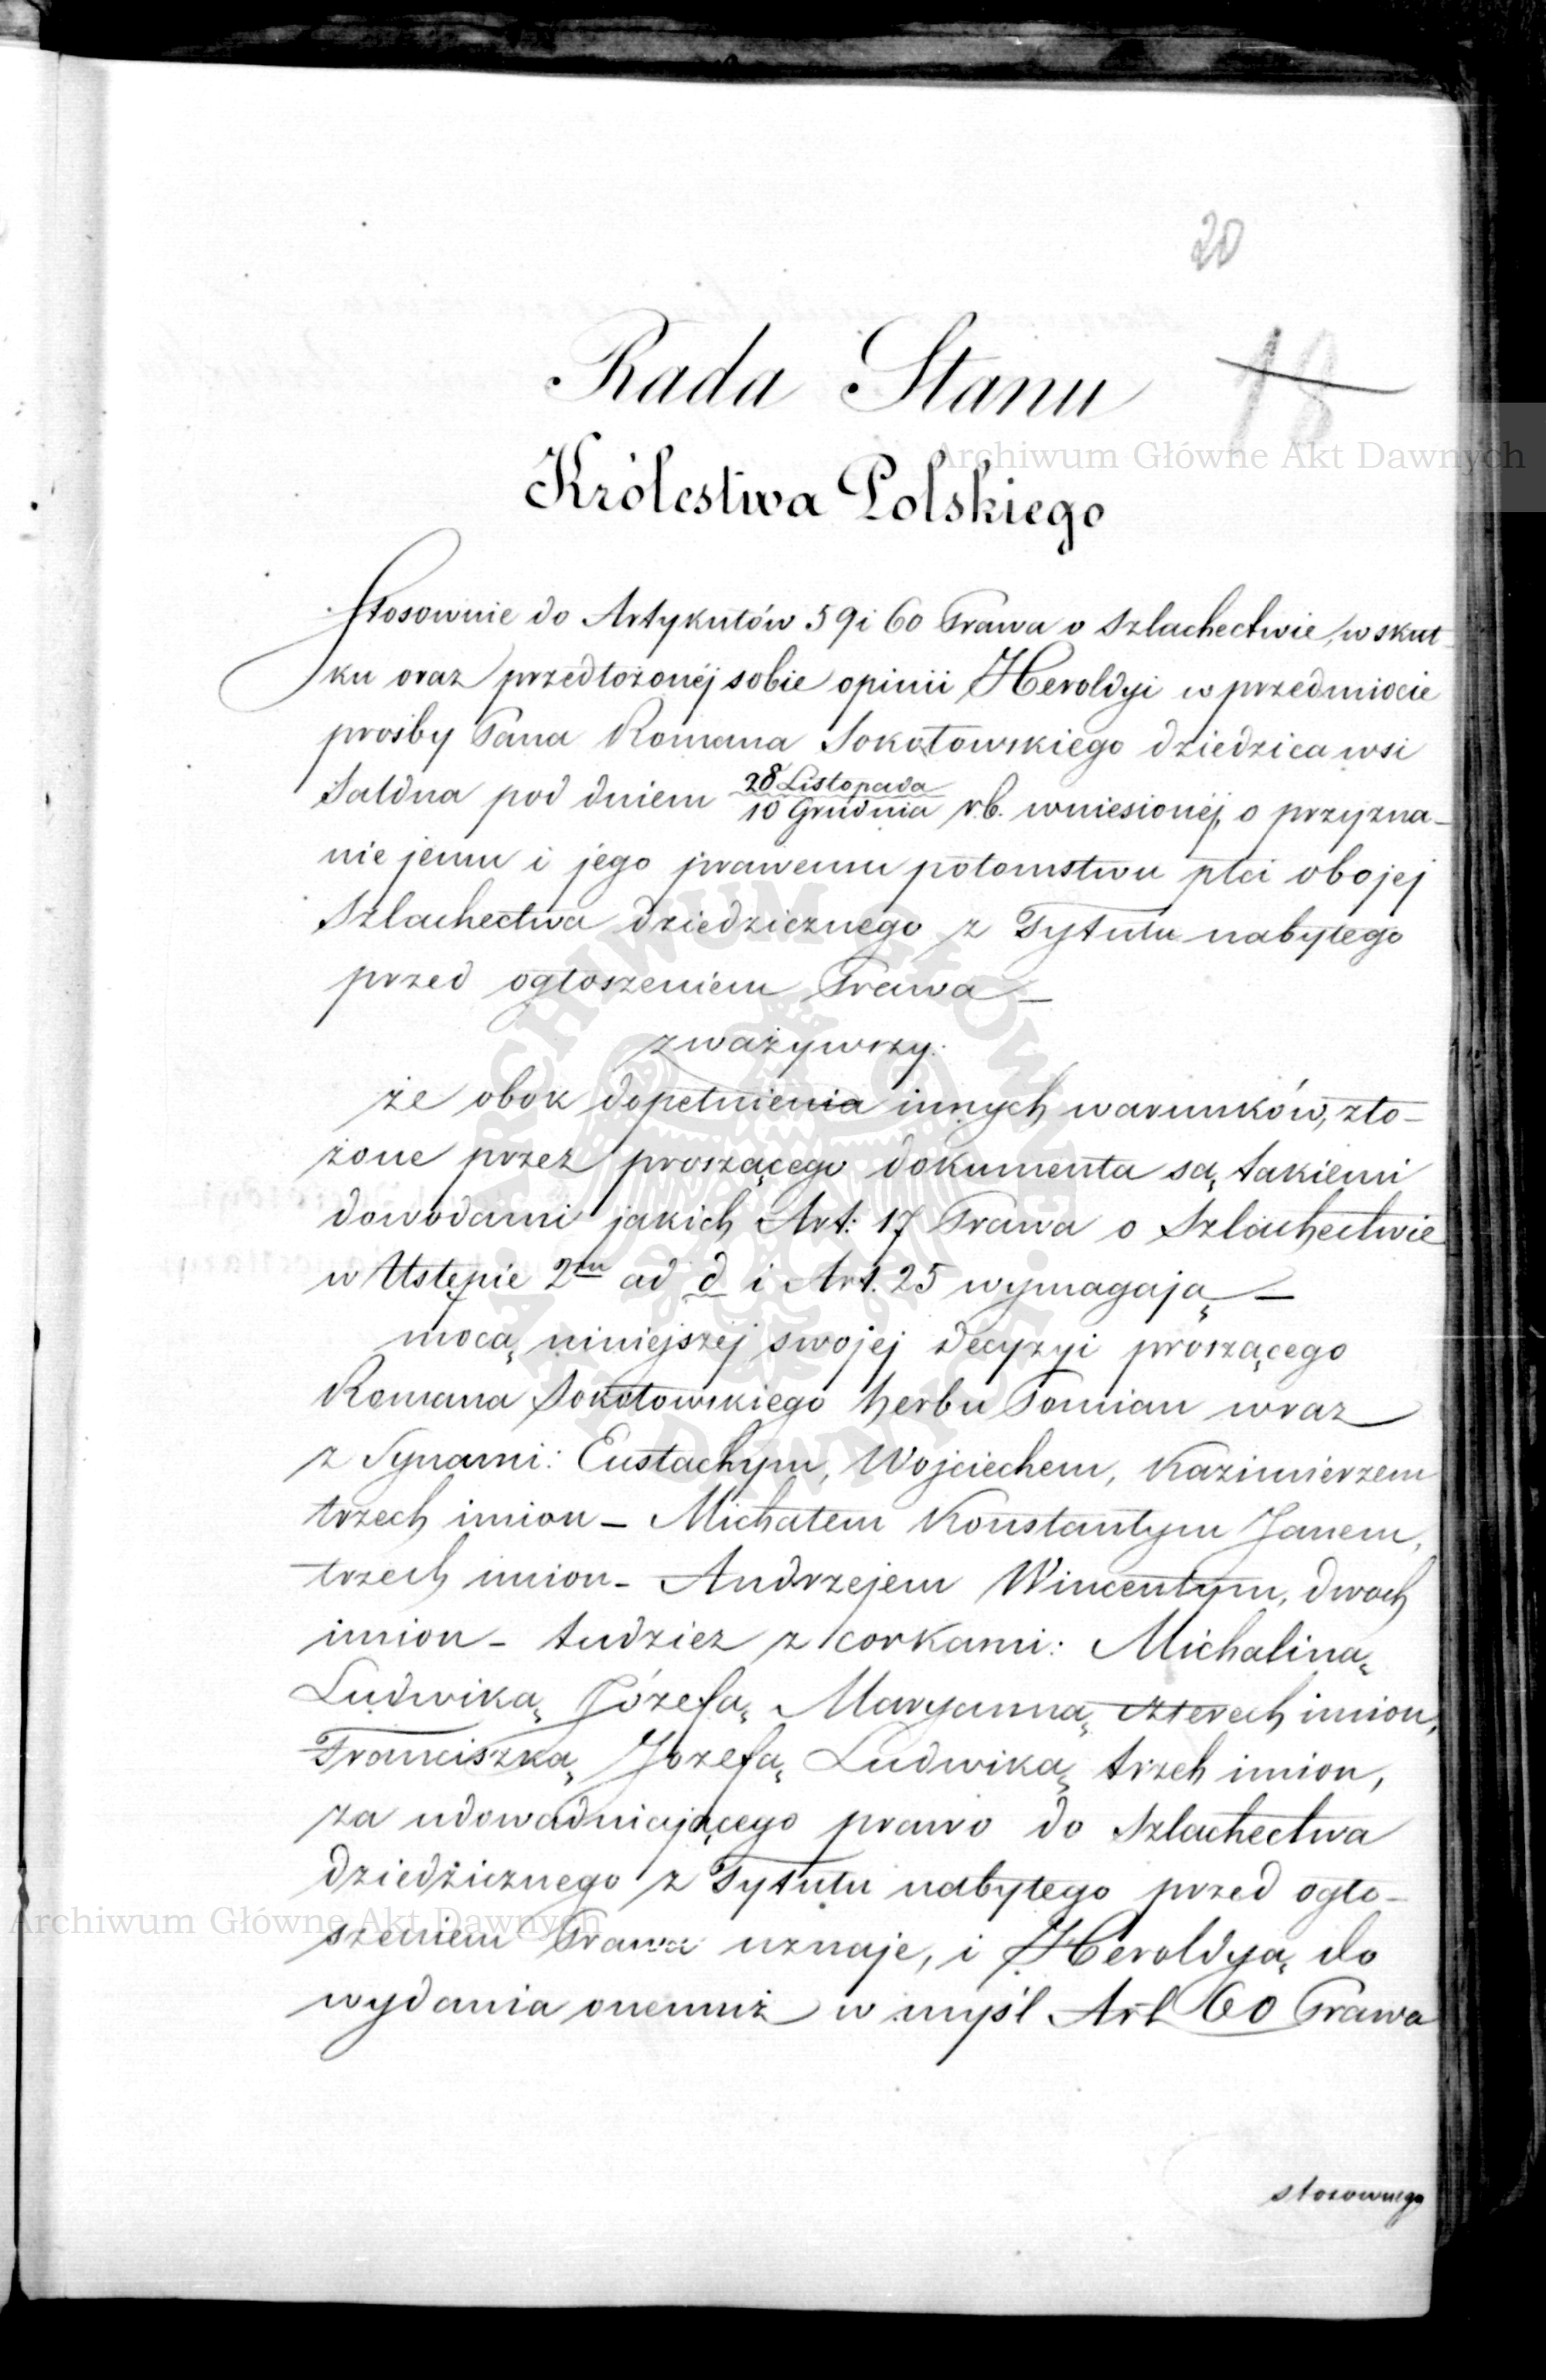 20
18
Rada Stanu
Królestwa Polskiego
Stosownie do Artykułów 59 i 60 Prawa o Szlachectwie, w skut-
ku oraz przedłożonéj sobie opinii Heroldyi w przedmiocie
prośby Pana Romana Sokołowskiego dziedzica wsi
Załdna pod dniem 28 Listopada
10 Grudnia r.b. wniesionéj, o przyzna-
nie jemu i jego prawemu potomstwu płci obojej
Szlachectwa dziedzicznego z Tytułu nabytego
przed ogłoszeniem Prawa –
zważywszy:
że obok dopełnienia innych warunków, zło-
żone przez proszącego dokumenta są takiemi
dowodami jakich Art: 17 Prawa o Szlachectwie
w Ustępie 2m ad d i Art. 25 wymagają –
mocą niniejszéj swojej decyzyi proszącego
Romana Sokołowskiego herbu Pomian wraz
z Synami: Eustachym, Wojciechem, Kazimierzem
trzech imion – Michałem Konstantym Janem,
trzech imion – Andrzejem Wincentym, dwoch
imion – tudzież z corkami: Michaliną
Ludwiką Józefą Maryanną czterech imion,
Franciszką Jozefą Ludwiką trzech imion,
za udowadniającego prawo do Szlachectwa
dziedzicznego z Tytułu nabytego przed ogło-
szeniem Prawa uznaje, i Heroldyą do
wydania onemuż w myśl Art 60 Prawa
stosownego
Archiwum Główne Akt Dawnych
ARCHIWUM GŁÓWNE AKT DAWNYCH
Archiwum Główne Akt Dawnych